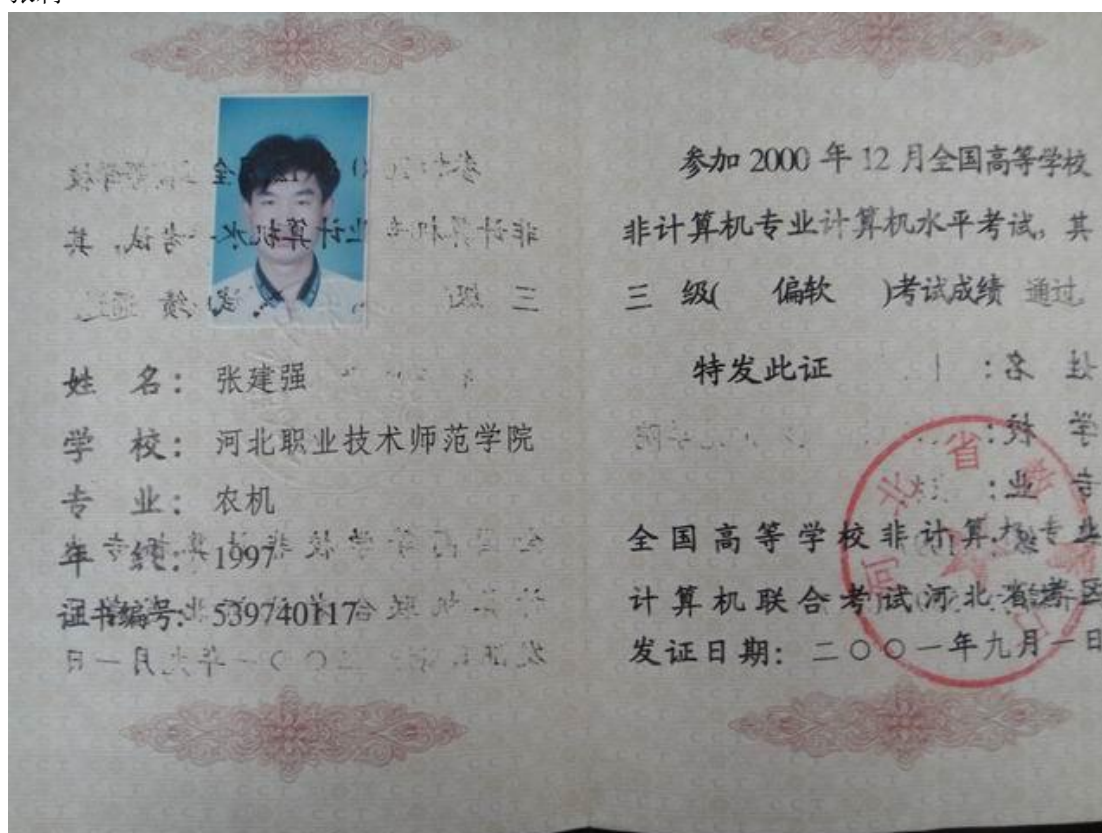 姓 名：张建强
学 校：河北职业技术师范学院
专 业：农机
年 级：1997
证书编号：539740117
参加 2000 年 12 月全国高等学校
非计算机专业计算机水平考试，其
三 级( 偏软 )考试成绩 通过。
特发此证
全国高等学校非计算机专业
计算机联合考试河北省考区
发证日期：二〇〇一年九月一日